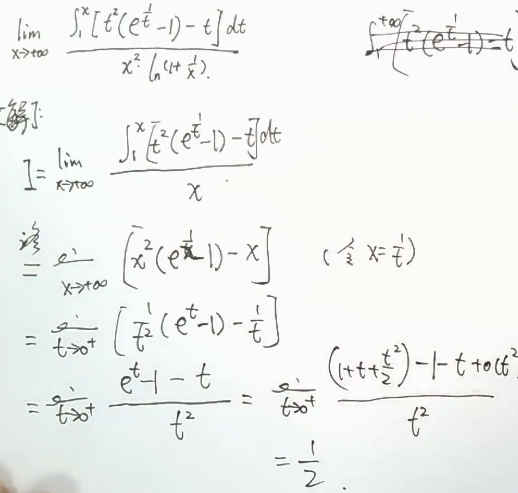 lim x→+∞ ∫₁ˣ [t²(e^{1/t}-1)-t]dt / x²·ln(1+1/x).
[解]:
I = lim x→+∞ ∫₁ˣ [t²(e^{1/t}-1)-t]dt / x
洛 = lim x→+∞ [x²(e^{1/x}-1)-x] (令 x=1/t)
= lim t→0⁺ [1/t² (e^t-1)-1/t]
= lim t→0⁺ (e^t-1-t)/t² = lim t→0⁺ ((1+t+t²/2)-1-t+o(t²))/t²
= 1/2.